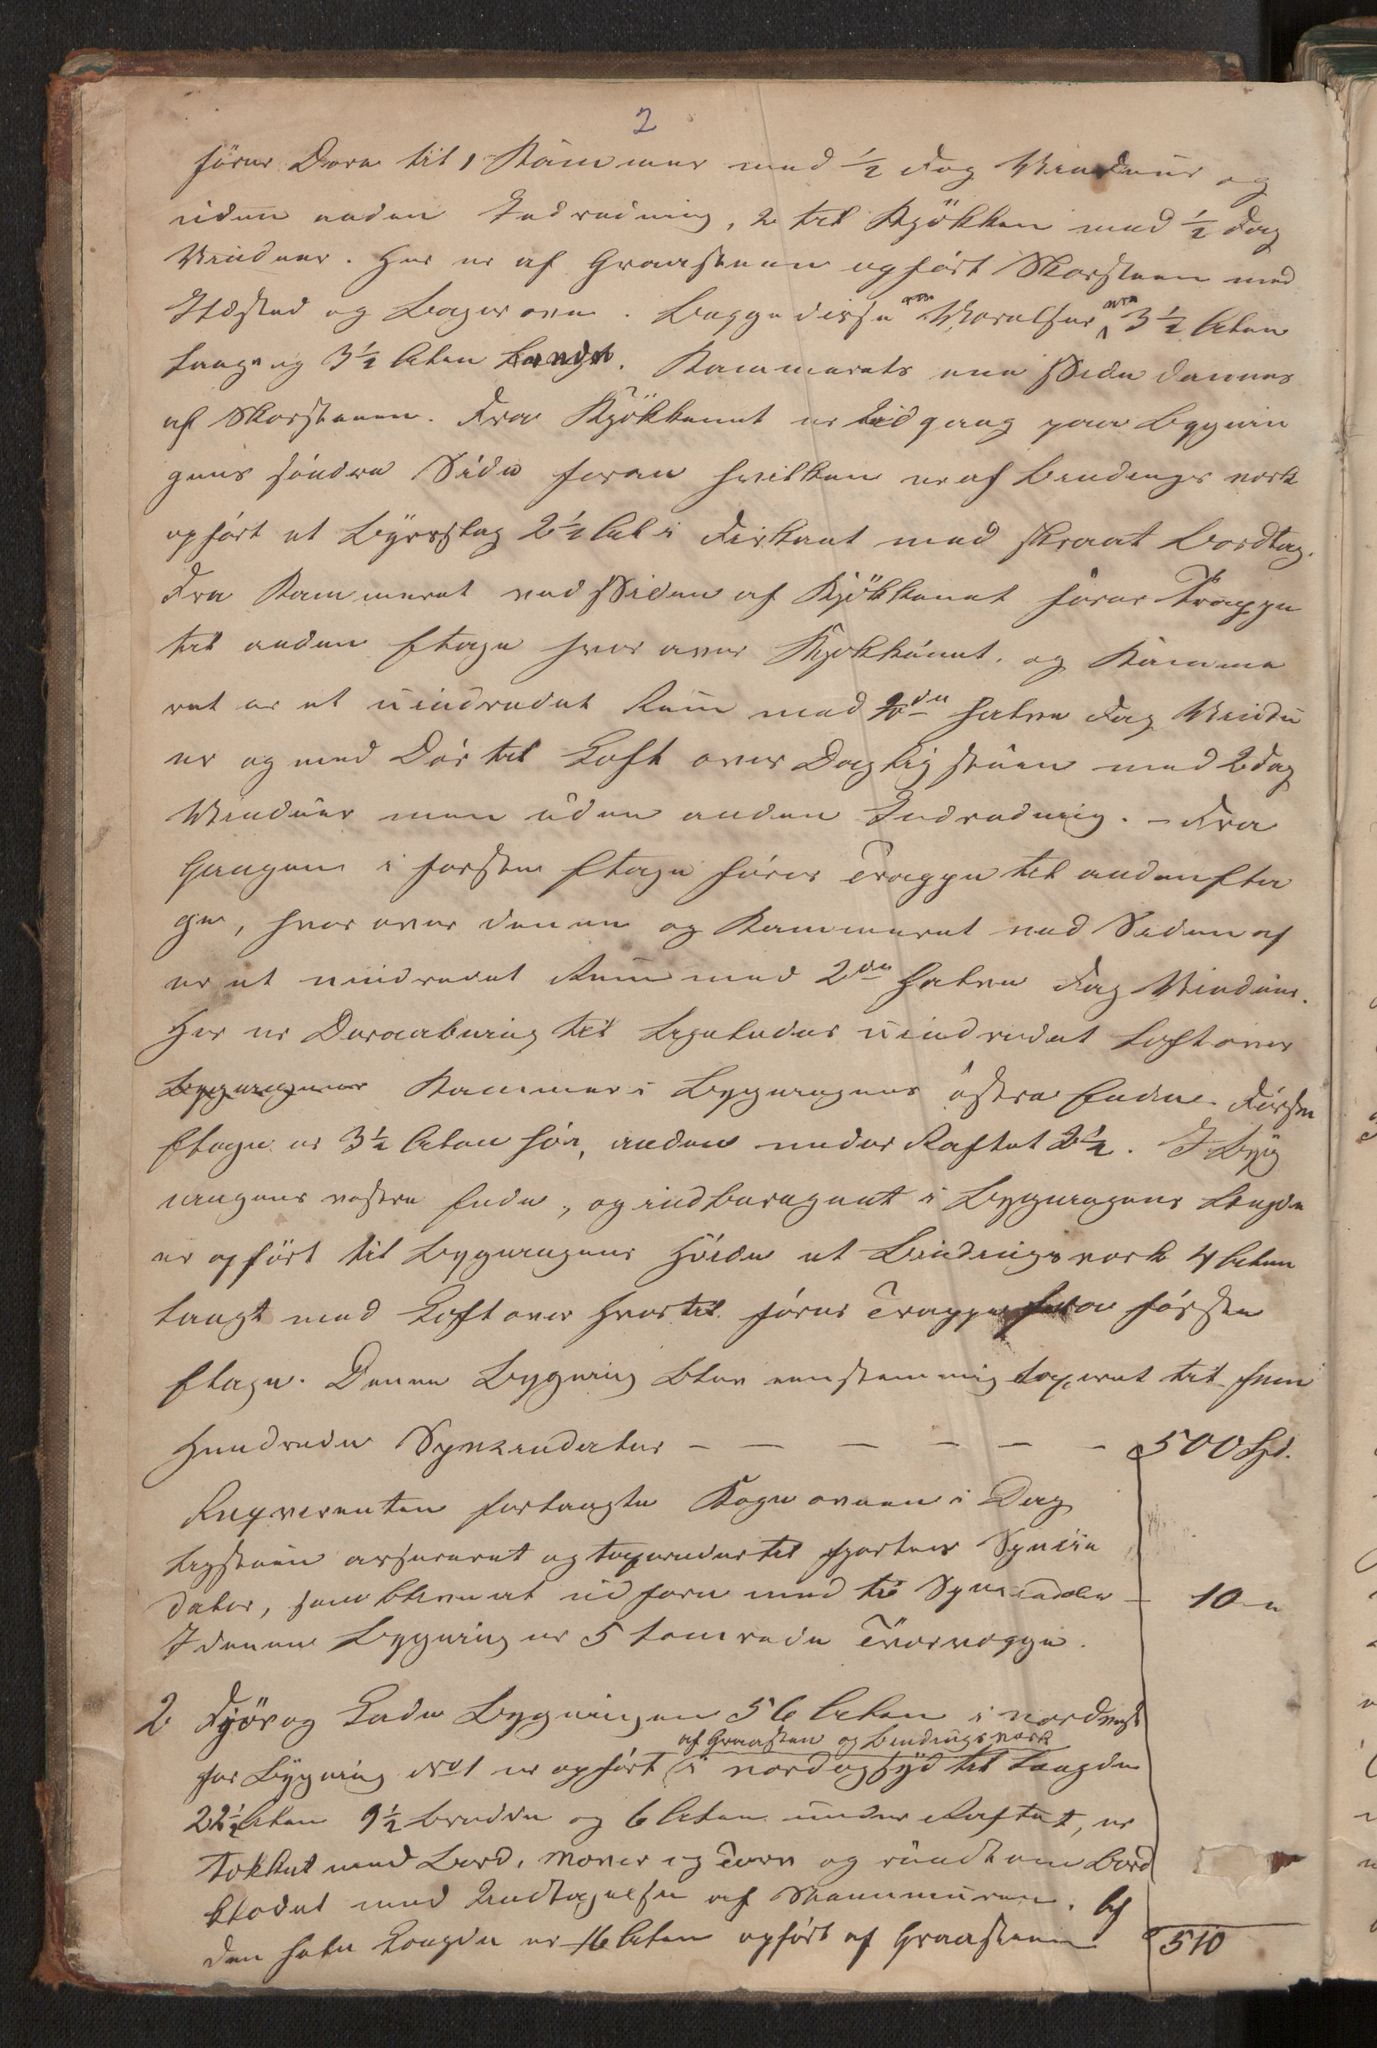 2
fører Døre til 1 Kammer med 1/2 Fag Vinduer og
uden anden Indredning, 2 til Kjökken med 1/2 Fag
Vinduer. Her er af Graasteen opfört Skorsteen med
Ildsted og Bagerovn. Begge disse Værelser ere 3 1/2 Alen
lange og 3 1/2 Alen. Kammerets ene Side dannes
af Skorsteenen. Fra Kjökkenet er Udgang paa Bygnin
gens söndre Side foran hvilken er af Bindingsverk
opfört et Byrslag 2 1/2 Al i Firkant med skraat Bordtag.
Fra Kammeret ved Siden af Kjökkenet förer Trappe
til anden Etage hvor over Kjøkkenet og Kamme
ret er et uindredet Rum med 2de halve Fag Vindu
er og med Dör til Loft over Dagligstuen med 2 Fag
Vinduer men uden anden Indredning. – Fra
Gangen i förste Etage förer Trappe til anden Eta
ge, hvor over denne og Kammeret ved Siden af
er et uindredet Rum med 2de halve Fag Vinduer.
Her er Döraabning til ligeledes uindredet Loft over
Bygningens Kammer i Bygningens östre Ende. Förste
Etage er 3 1/2 Alen höi, anden under Raftet 2 1/2. I Byg
ningens vestre Ende, og indberegnet i Bygningens Længde
er opfört til Bygningens Höide et Bindingsverk 4 Alen
langt med Loft over hvortil förer Trappe fra förste
Etage. Denne Bygning blev eenstemmig taxeret til fem
Hundrede Speciedaler – – – – – – 500 Spd.
Reqverenten forlangte Kogeovnen i Dag
ligstuen assureret og taxeredes til Specie
daler, som blev at udföre med ti Speciedaler – 10 "
I denne Bygning er 5 tömrede Tværvægge.
2 Fjös og Lade Bygningen 56 Alen i nordvest
af Graasten og Bindingsverk
for Bygning No 1 er opfört i nord og syd til Længde
22 1/2 Alen 9 1/2 Bredde og 6 Alen under Raftet, er
tækket med Bord, Næver og Torv og rundt om Bord
klædet med Undtagelse af Steenmuren. Af
den hele Længde er 16 Alen opfört af Graasteen 510